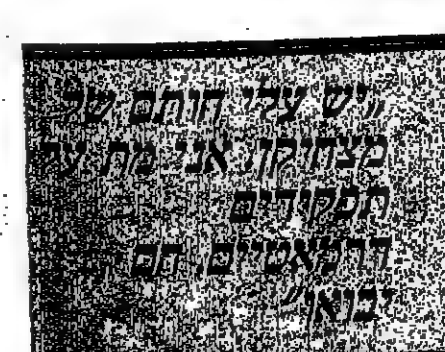 "יש עלי חותם של
מצחיקן. אני מת על
תפקידים
דרמאטיים. הם
יבואו"